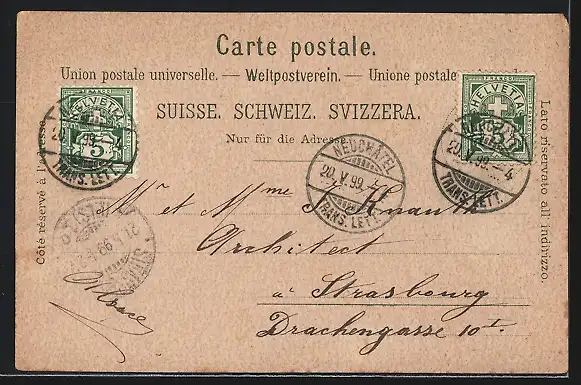 Carte postale.
Union postale universelle. — Weltpostverein. — Unione postale
SUISSE. SCHWEIZ. SVIZZERA.
Nur für die Adresse.
Côté réservé à l'adresse.
Lato riservato all' indirizzo.
FRANCO
HELVETIA
5
20. V. 99. 4
TRANS. LETT.
FRANCO
HELVETIA
5
NEUCHÂTEL
V. 99. 4
TRANS. LETT.
NEUCHÂTEL
20. V. 99. 4
TRANS. LETT.
21. 5. 99
Mr et Mme Knauth
Architect
à Strasbourg
Drachengasse 10 I.